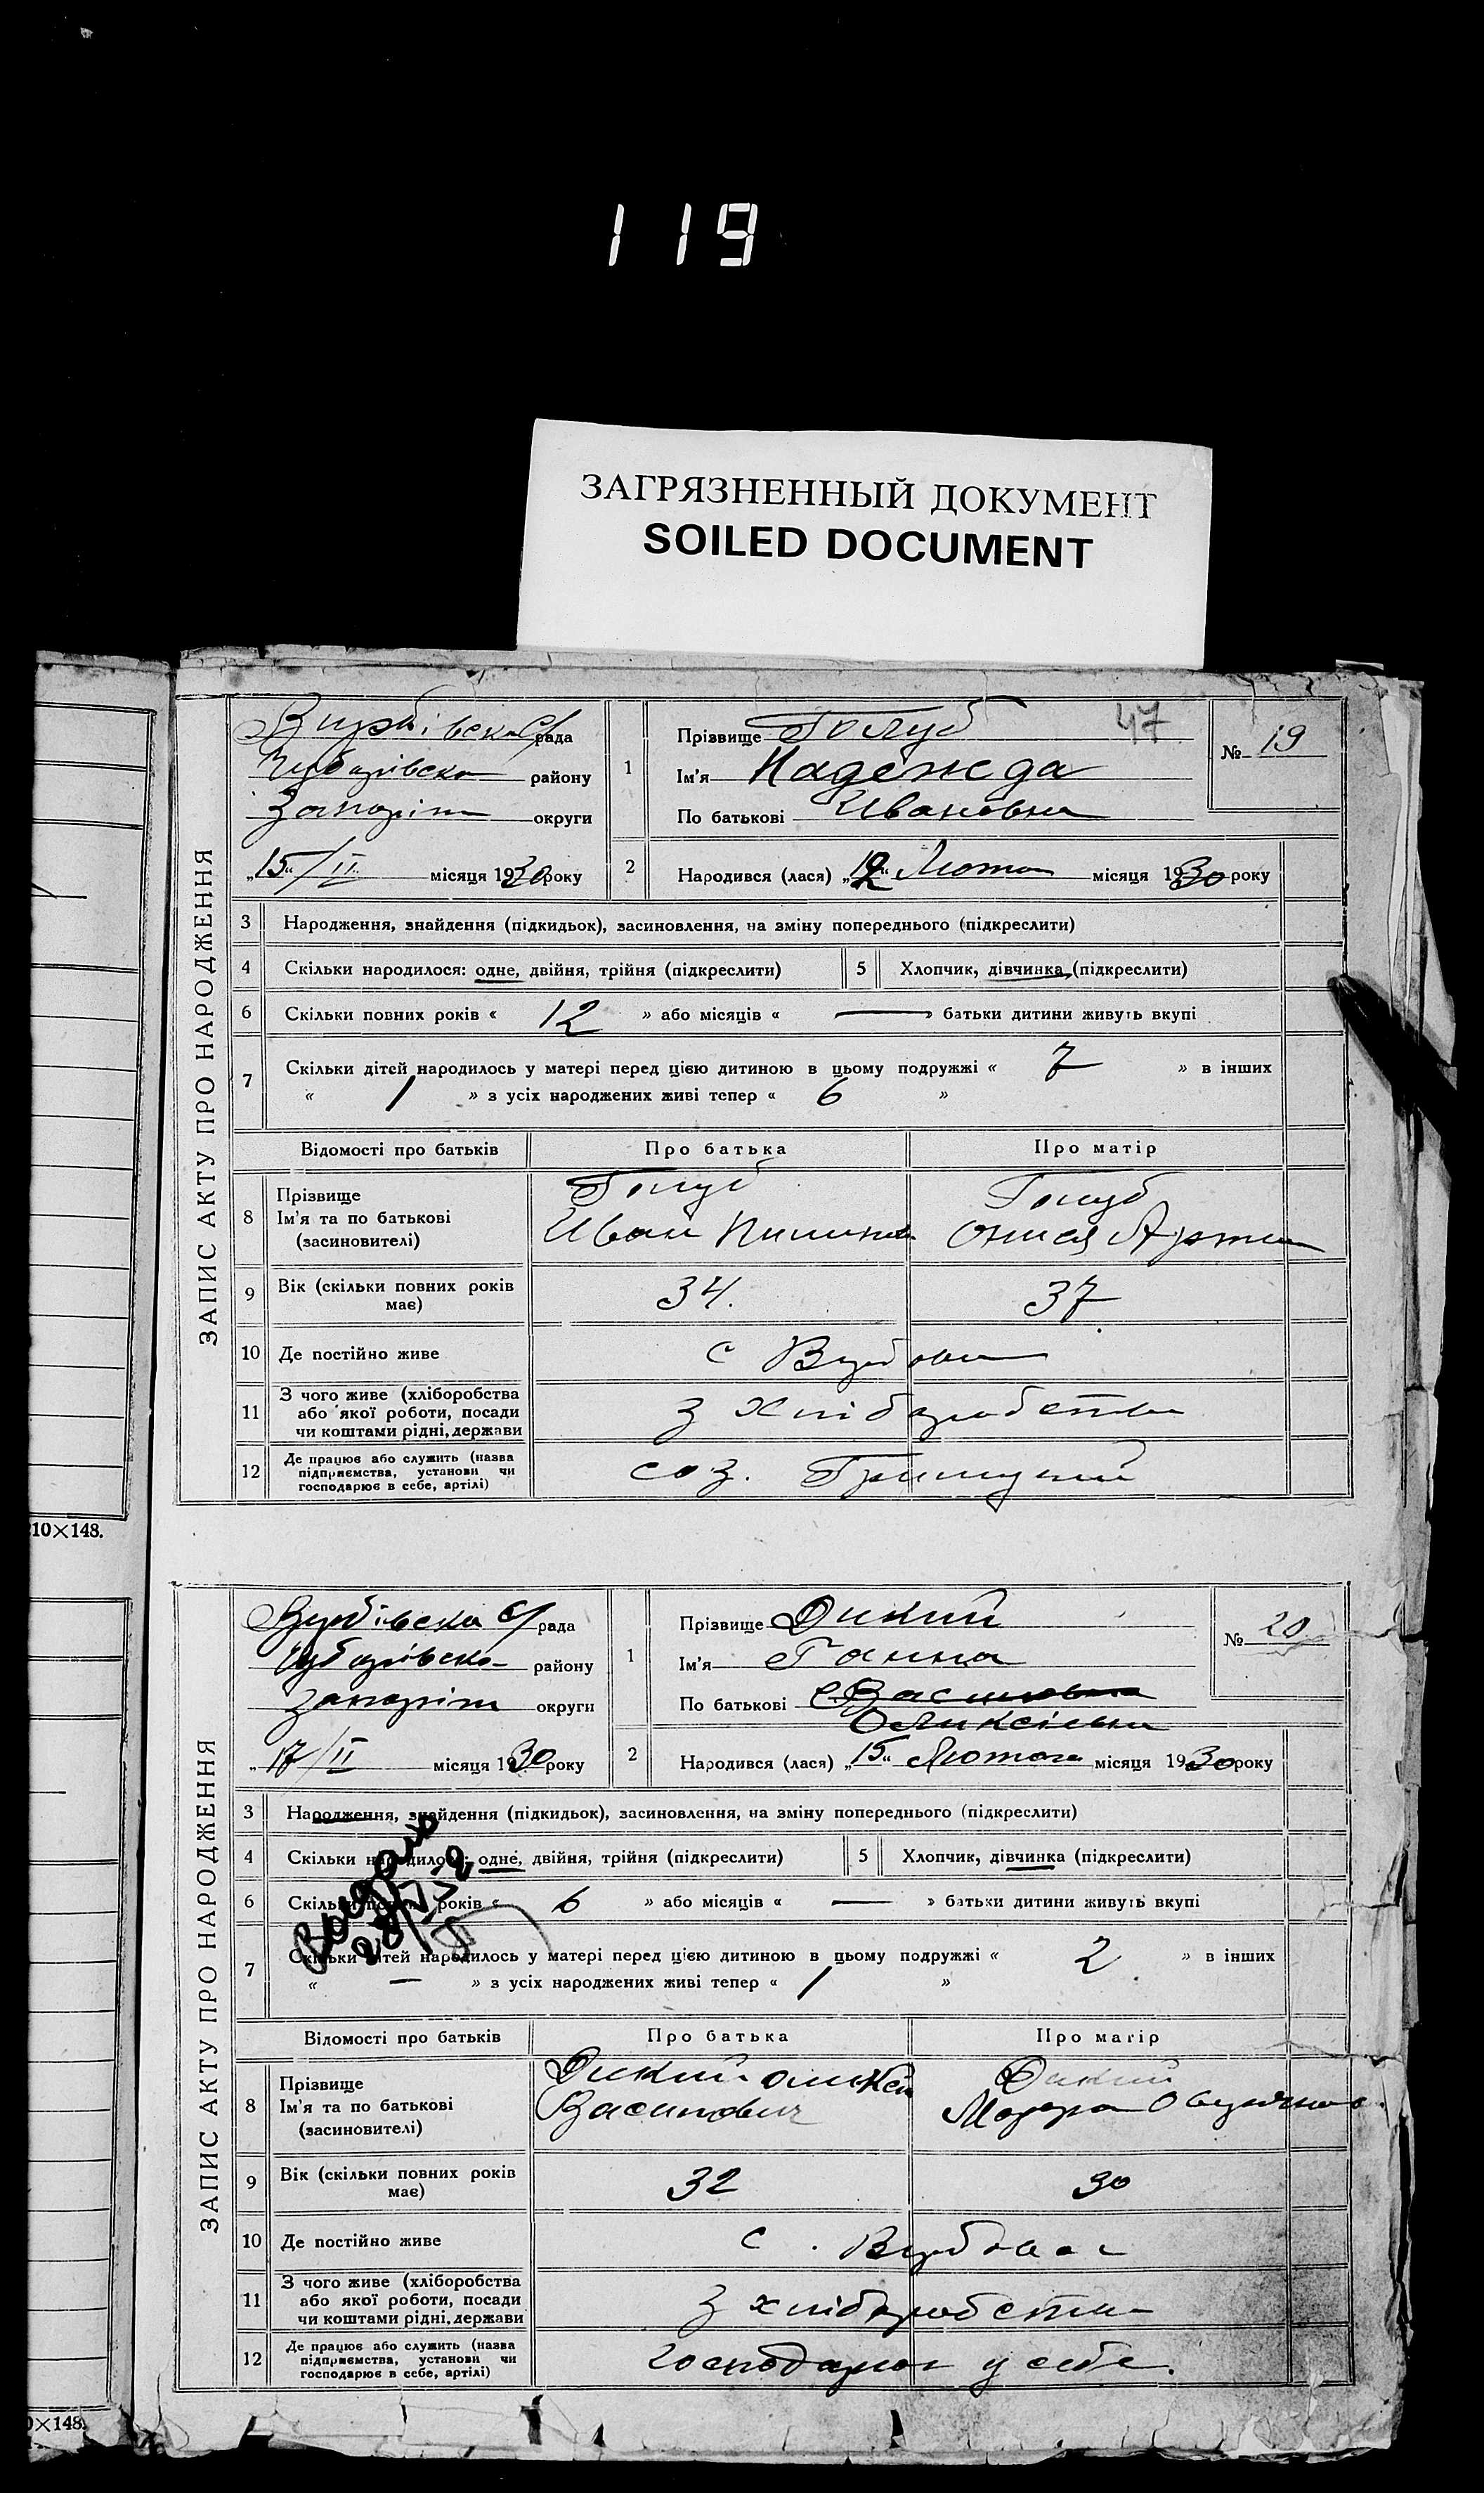 119
ЗАГРЯЗНЕННЫЙ ДОКУМЕНТ
SOILED DOCUMENT
10×148.
0×148.
ЗАПИС АКТУ ПРО НАРОДЖЕННЯ
Вербівська с/рада
Чубарівськ району
Запоріж округи
„15“/II місяця 1930 року
1
Прізвище Голуб
47
№ 19
Ім'я Надежда
По батькові Ивановна
2 Народився (лася) „12“ Лютого місяця 1930 року
3 Народження, знайдення (підкидьок), засиновлення, на зміну попереднього (підкреслити)
4 Скільки народилося: одне, двійня, трійня (підкреслити) 5 Хлопчик, дівчинка (підкреслити)
6 Скільки повних років « 12 » або місяців « — » батьки дитини живуть вкупі
7 Скільки дітей народилось у матері перед цією дитиною в цьому подружжі « 7 » в інших
« 1 » з усіх народжених живі тепер « 6 »
Відомості про батьків Про батька Про матір
8 Прізвище
Ім'я та по батькові
(засиновителі)
Голуб
Иван
Голуб
Онися Артем
9 Вік (скільки повних років
має)
34. 37
10 Де постійно живе с Вербова
11 З чого живе (хліборобства
або якої роботи, посади
чи коштами рідні, держави
з хліборобства
12 Де працює або служить (назва
підприємства, установи чи
господарює в себе, артілі)
соз.
ЗАПИС АКТУ ПРО НАРОДЖЕННЯ
Вербівська с/рада
Чубарівськ району
Запоріж округи
„17/II місяця 1930 року
1
Прізвище Дикий
№ 20
Ім'я Ганна
По батькові Василовна
Оликсіївна
2 Народився (лася) „15“ Лютого місяця 1930 року
3 Народження, знайдення (підкидьок), засиновлення, на зміну попереднього (підкреслити)
4 Скільки народилося: одне, двійня, трійня (підкреслити) 5 Хлопчик, дівчинка (підкреслити)
6 Скільки повних років « 6 » або місяців « — » батьки дитини живуть вкупі
7 Скільки дітей народилось у матері перед цією дитиною в цьому подружжі « 2 » в інших
« — » з усіх народжених живі тепер « 1 »
Відомості про батьків Про батька Про матір
8 Прізвище
Ім'я та по батькові
(засиновителі)
Дикий Оликсій
Василович
Дикий
9 Вік (скільки повних років
має)
32 30
10 Де постійно живе с. Вербова
11 З чого живе (хліборобства
або якої роботи, посади
чи коштами рідні, держави
з хліборобства
12 Де працює або служить (назва
підприємства, установи чи
господарює в себе, артілі)
господарює у себе.